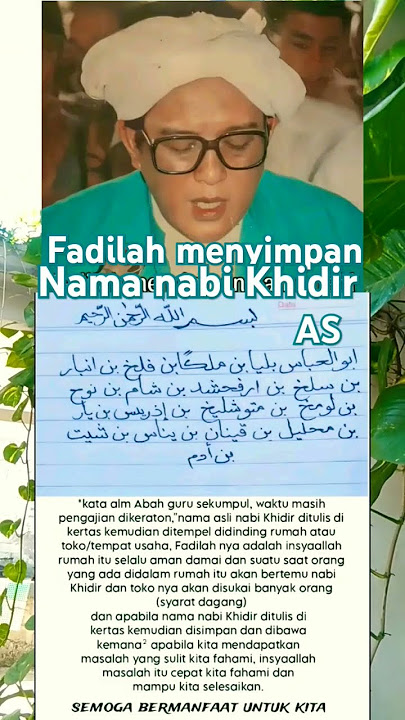 Fadilah menyimpan
Nama nabi Khidir
AS
بسم الله الرحمن الرحيم
ابو العباس بليا بن ملكا بن فلخ بن انبار
بن سلخ بن ارفحشد بن شام بن نوح
بن لومخ بن متوشليخ بن إذريس بن يار
بن محليل بن قينان بن يناس بن شيت
بن آدم
"kata alm Abah guru sekumpul, waktu masih
pengajian dikeraton,"nama asli nabi Khidir ditulis di
kertas kemudian ditempel didinding rumah atau
toko/tempat usaha, Fadilah nya adalah insyaallah
rumah itu selalu aman damai dan suatu saat orang
yang ada didalam rumah itu akan bertemu nabi
Khidir dan toko nya akan disukai banyak orang
(syarat dagang)
dan apabila nama nabi Khidir ditulis di
kertas kemudian disimpan dan dibawa
kemana² apabila kita mendapatkan
masalah yang sulit kita fahami, insyaallah
masalah itu cepat kita fahami dan
mampu kita selesaikan.
SEMOGA BERMANFAAT UNTUK KITA